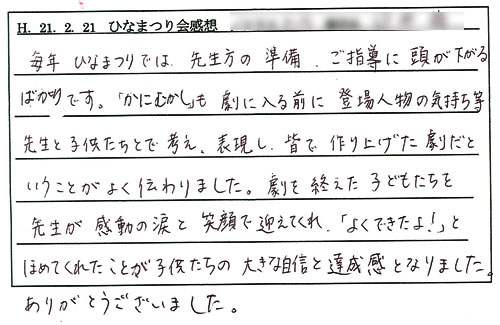 H. 21. 2. 21 ひなまつり会感想
毎年 ひなまつりでは、先生方の準備、ご指導に頭が下がる
ばかりです。「かにむかし」も劇に入る前に登場人物の気持ち等
先生と子供たちとで考え、表現し、皆で作り上げた劇だと
いうことがよく伝わりました。劇を終えた子どもたちを
先生が感動の涙と笑顔で迎えてくれ、「よくできたよ!」と
ほめてくれたことが子供たちの大きな自信と達成感となりました。
ありがとうございました。